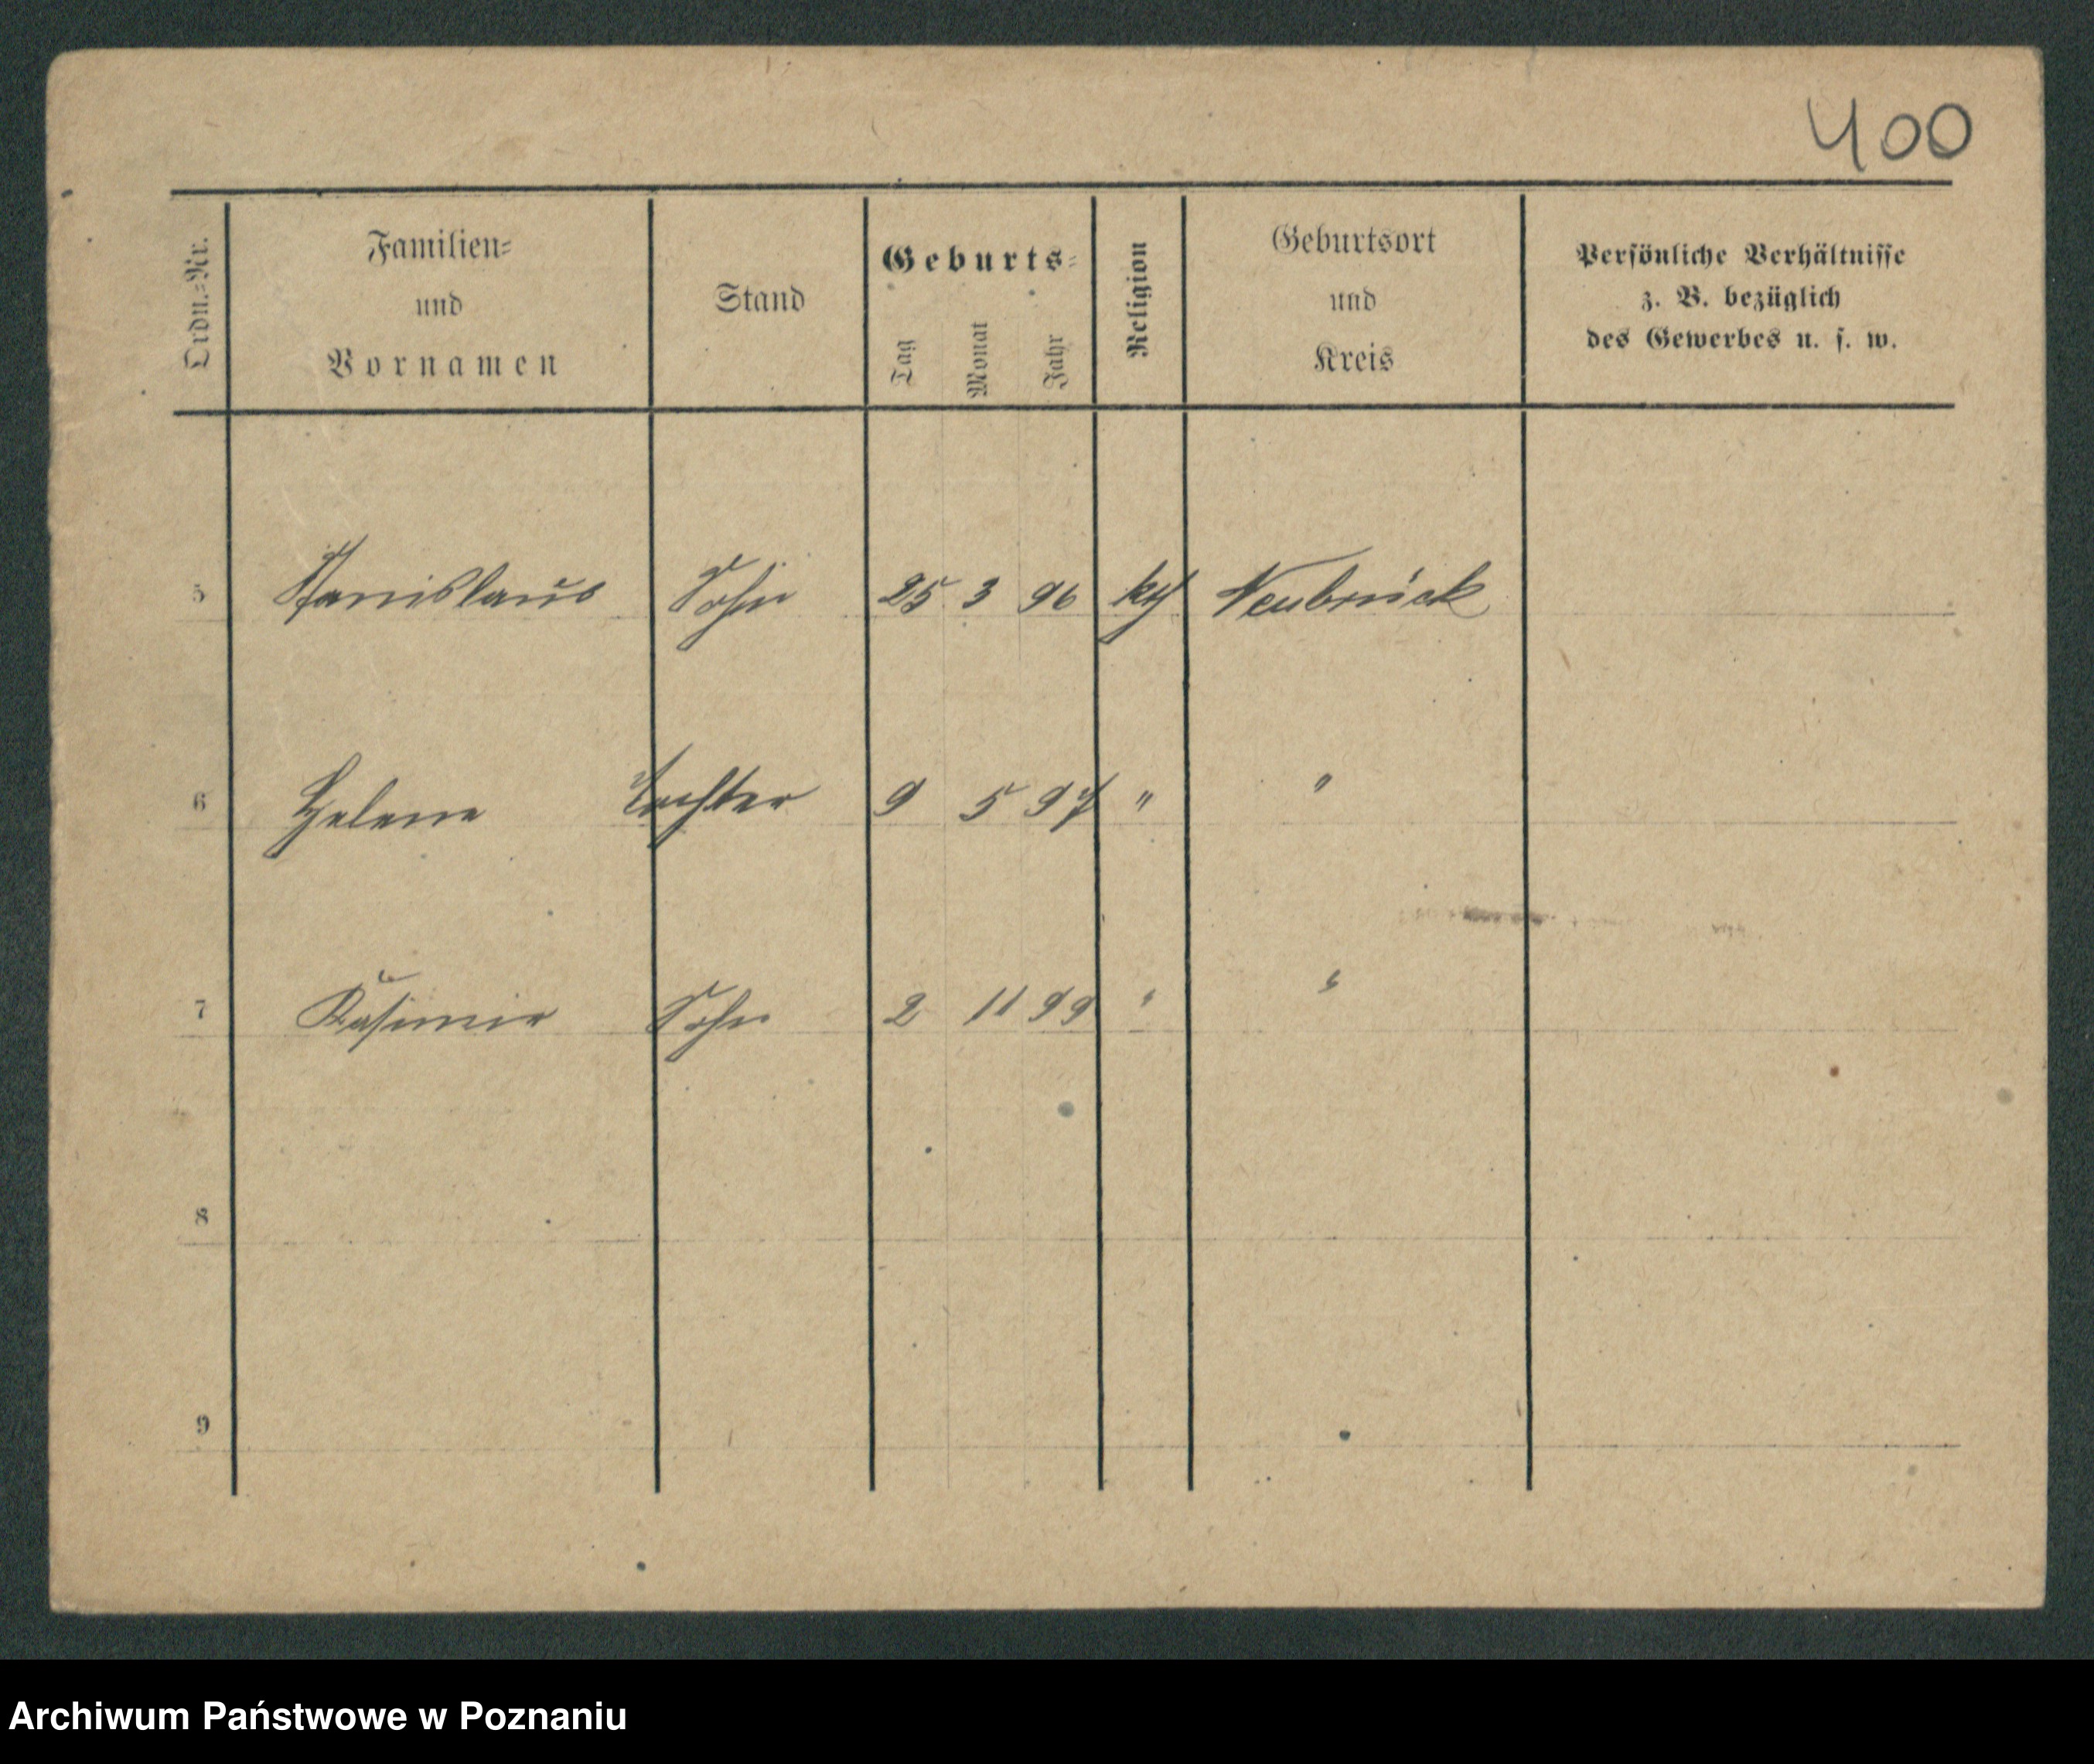 400
Ordn.-Nr.
Familien-
und
Vornamen
Stand
Geburts-
Tag Monat Jahr
Religion
Geburtsort
und
Kreis
Persönliche Verhältnisse
z. B. bezüglich
des Gewerbes u. s. w.
5 Stanislaus Sohn 25 3 96 kth Neubrück
6 Helene Tochter 9 5 97 " "
7 Kasimir Sohn 2 11 99 " "
8
9
Archiwum Państwowe w Poznaniu